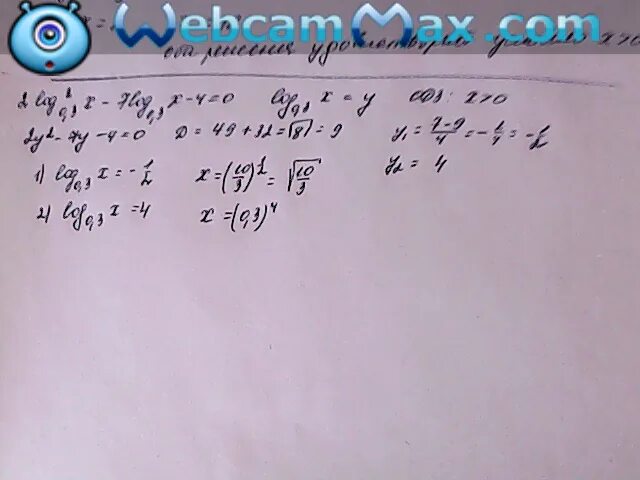 WebcamMax.com
решения удовлетворяют условию x>0
2 log²₀,₃ x - 7 log₀,₃ x - 4 = 0 log₀,₃ x = y ОДЗ: x>0
2y² - 7y - 4 = 0 D = 49 + 32 = √81 = 9 y₁ = (7-9)/4 = -2/4 = -1/2
1) log₀,₃ x = -1/2 x = (10/3)^(1/2) = √(10/3) y₂ = 4
2) log₀,₃ x = 4 x = (0,3)⁴